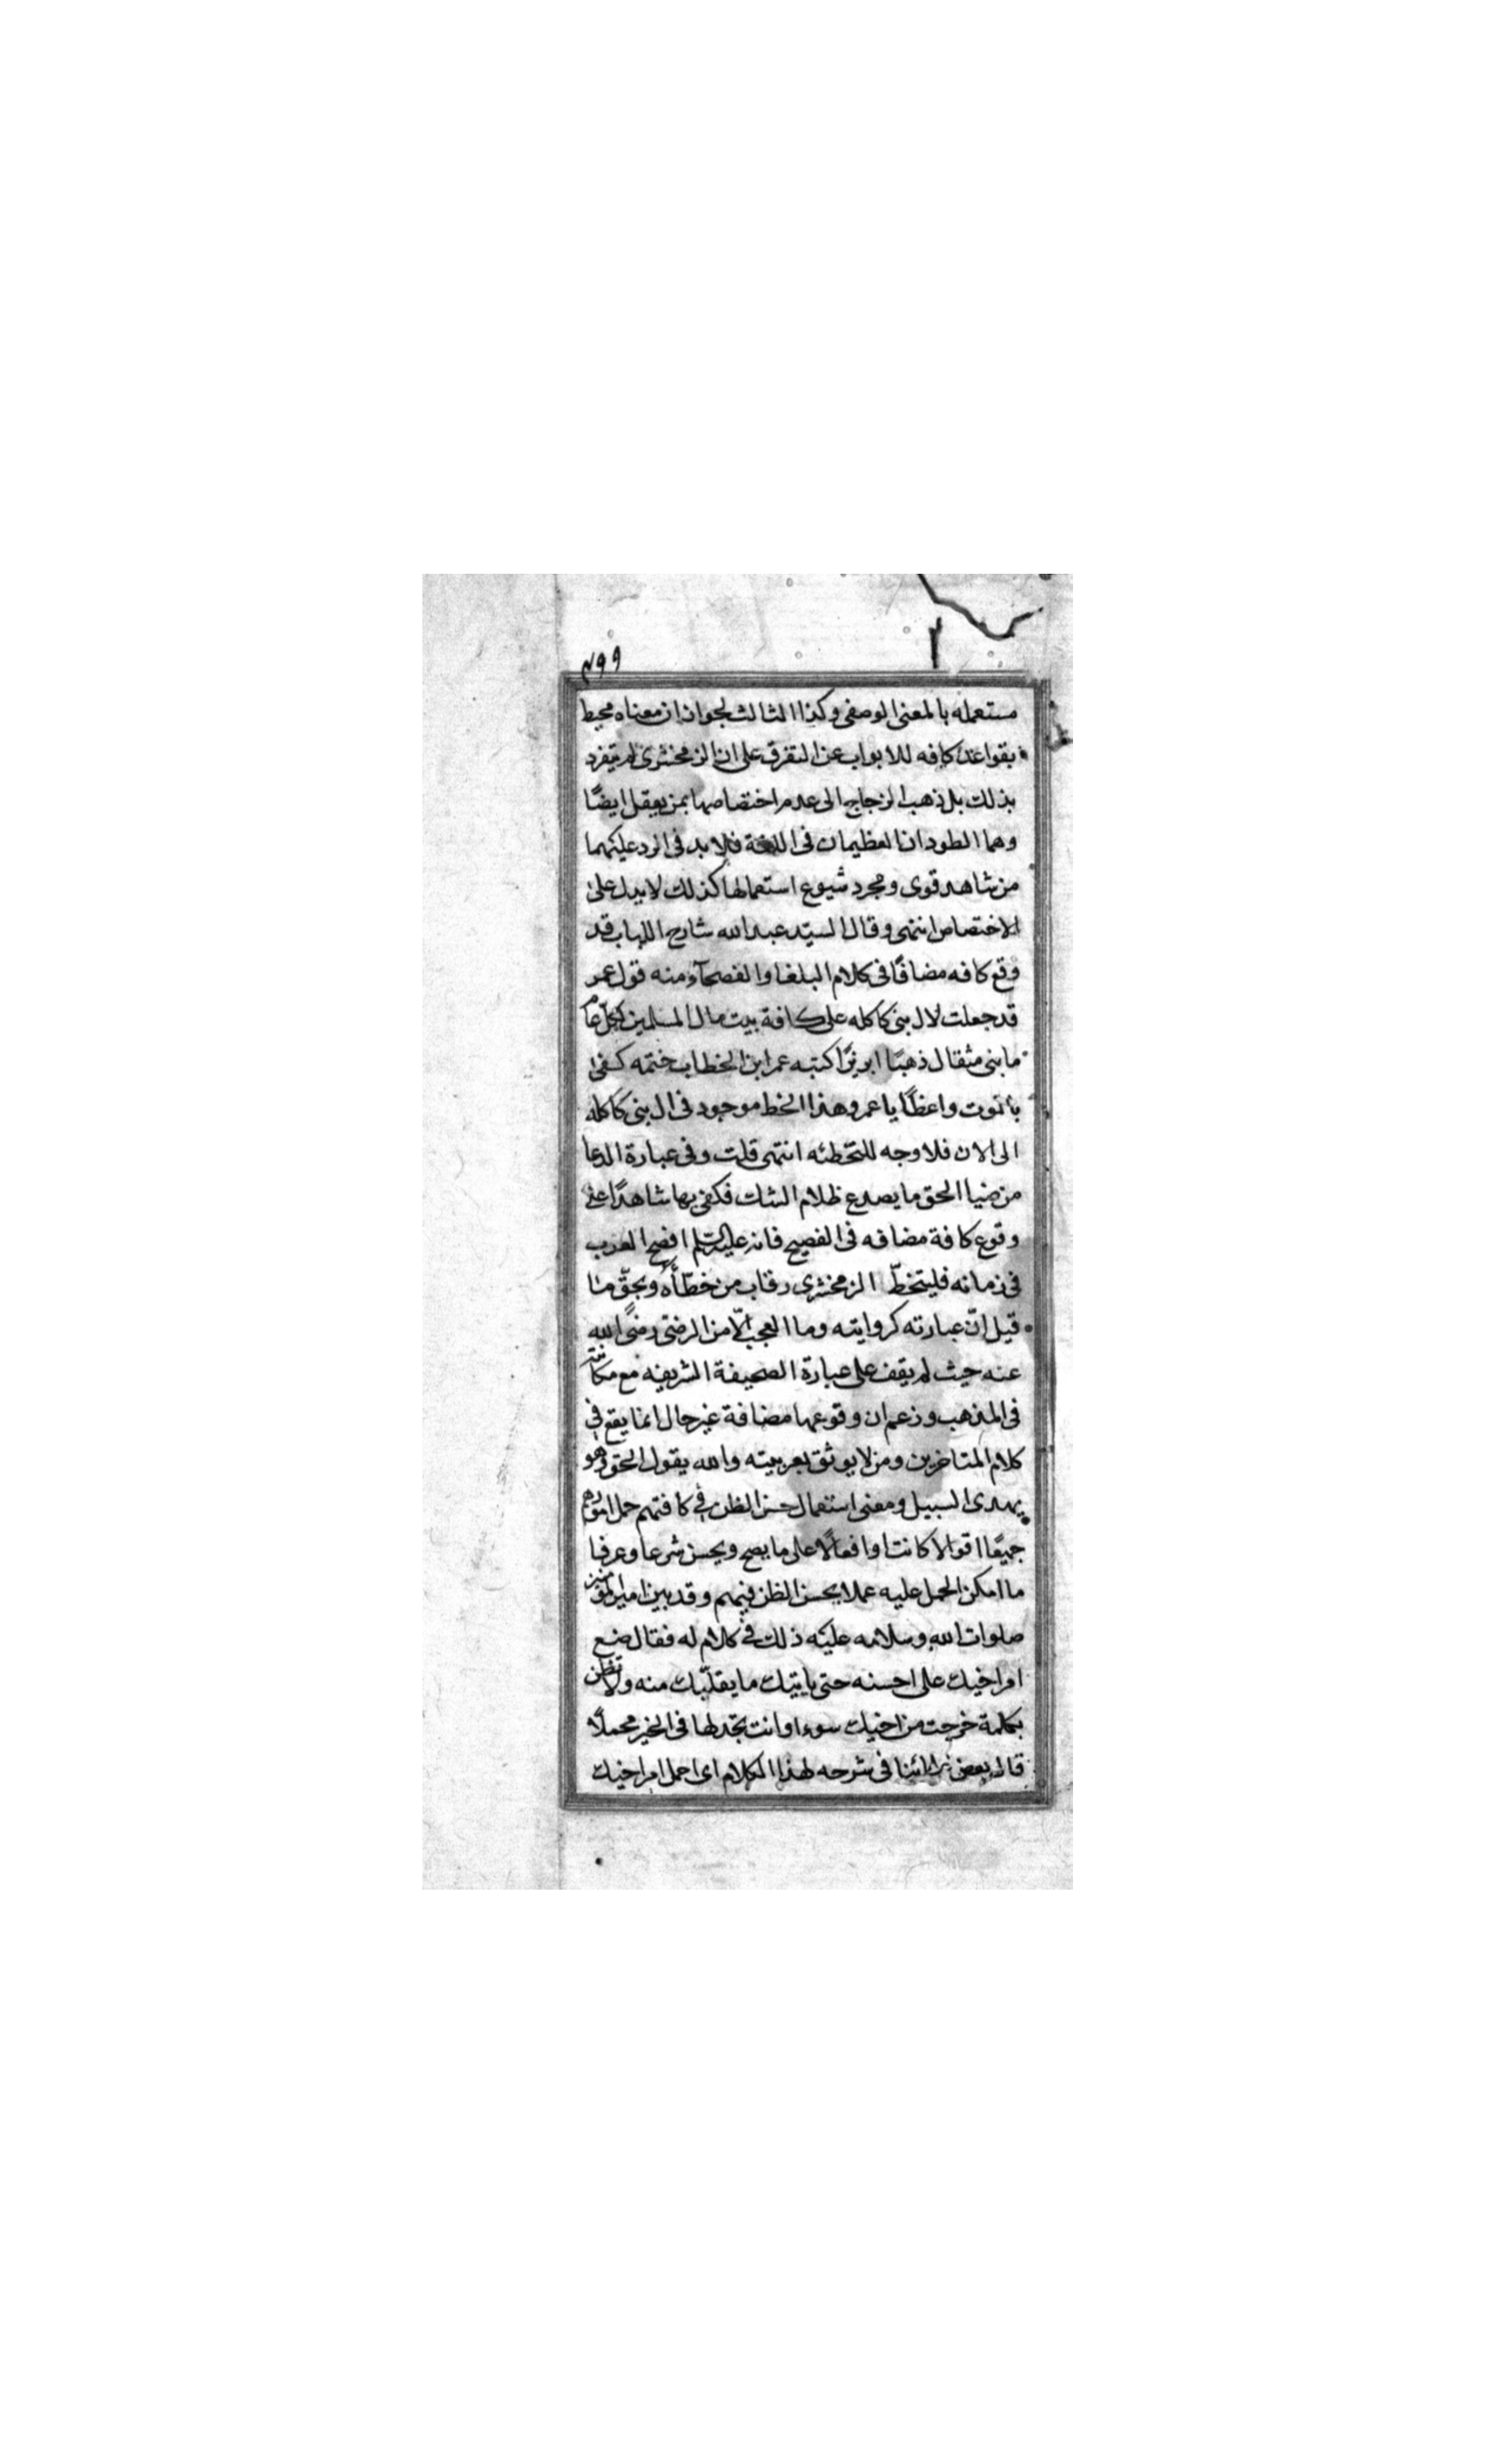 ٤٩٩
مستعمله بالمعنى الوصفى وكذا الثالث لجوازان معناه محيط
بقواعد كافه للابواب عن التفرق على ان الزمخشرى لم يتفرد
بذلك بل ذهب الزجاج الى عدم اختصاصها بمن يعقل ايضًا
وهما الطودان العظيمان فى اللغة فلا بد فى الرد عليهما
من شاهد قوى ومجرد شيوع استعمالها كذلك لا يدل على
الاختصاص انتهى وقال السيّد عبد الله شارح اللباب قد
وقع كافه مضافًا فى كلام البلغا والفصحآء منه قول عمر
قد جعلت لال بنى كاكله على كافة بيت مال المسلمين لكل عام
مابنى مثقال ذهبًا ابريزًا كتبه عمر ابن الخطاب ختمه كفى
بالموت واعظًا يا عمر وهذا الخط موجود فى ال بنى كاكله
الى الان فلا وجه للتخطئه انتهى قلت وفى عبارة الدعا
من ضيا الحق ما يصدع ظلام الشك فكفى بها شاهدًا على
وقوع كافة مضافه فى الفصيح فانه عليه السّلم افصح العرب
فى زمانه فليتخطّ الزمخشرى رقاب من خطّأه وبحقّ ما
قيل انّ عبارته كروايته وما العجب الّا من الرضىّ رضى الله
عنه حيث لم يقف على عبارة الصحيفة الشريفه مع مكانته
فى المذهب وزعم ان وقوعها مضافة غير حال انما يقع فى
كلام المتاخرين ومن لا يوثق بعربيته والله يقول الحق وهو
يهدى السبيل ومعنى استعمال حسن الظن فى كافتهم حمل امورهم
جميعًا اقوالا كانت او افعالًا على ما يصح ويحسن شرعا وعرفا
ما امكن الحمل عليه عملا بحسن الظن فيهم وقد بين امير المؤمنين
صلوات الله وسلامه عليه ذلك فى كلام له فقال ضع
امر اخيك على احسنه حتى ياتيك ما يقلّبك منه ولا تظن
بكلمة خرجت من اخيك سوءا وانت تجد لها فى الخير محملًا
قال بعض فى شرحه لهذا الكلام اى احمل امر اخيك